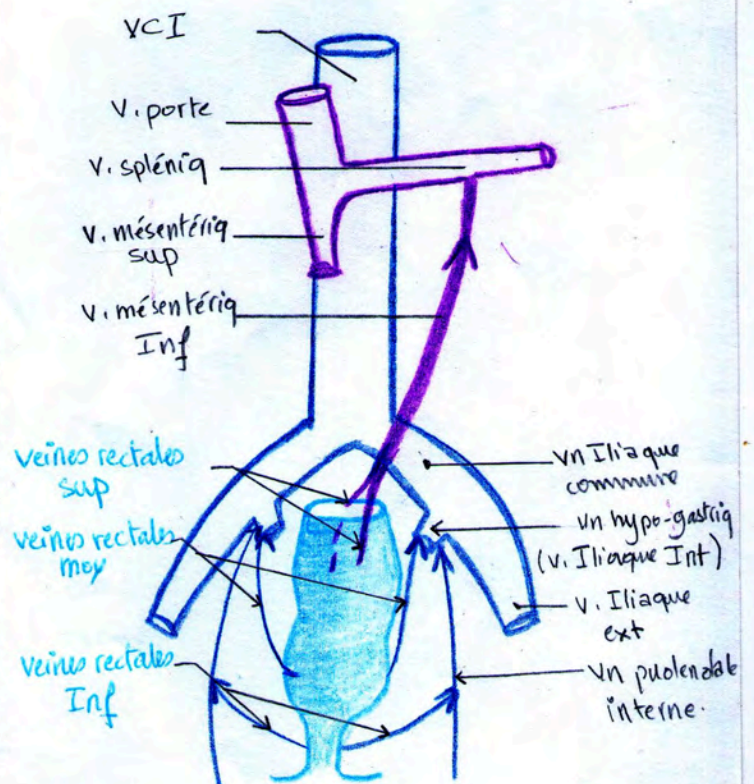 VCI
V. porte
V. spléniq
V. mésentériq
sup
V. mésentériq
Inf
veines rectales
sup
veines rectales
moy
veines rectales
Inf
vn Iliaque
commune
vn hypo-gastriq
(v. Iliaque Int)
v. Iliaque
ext
vn
interne.